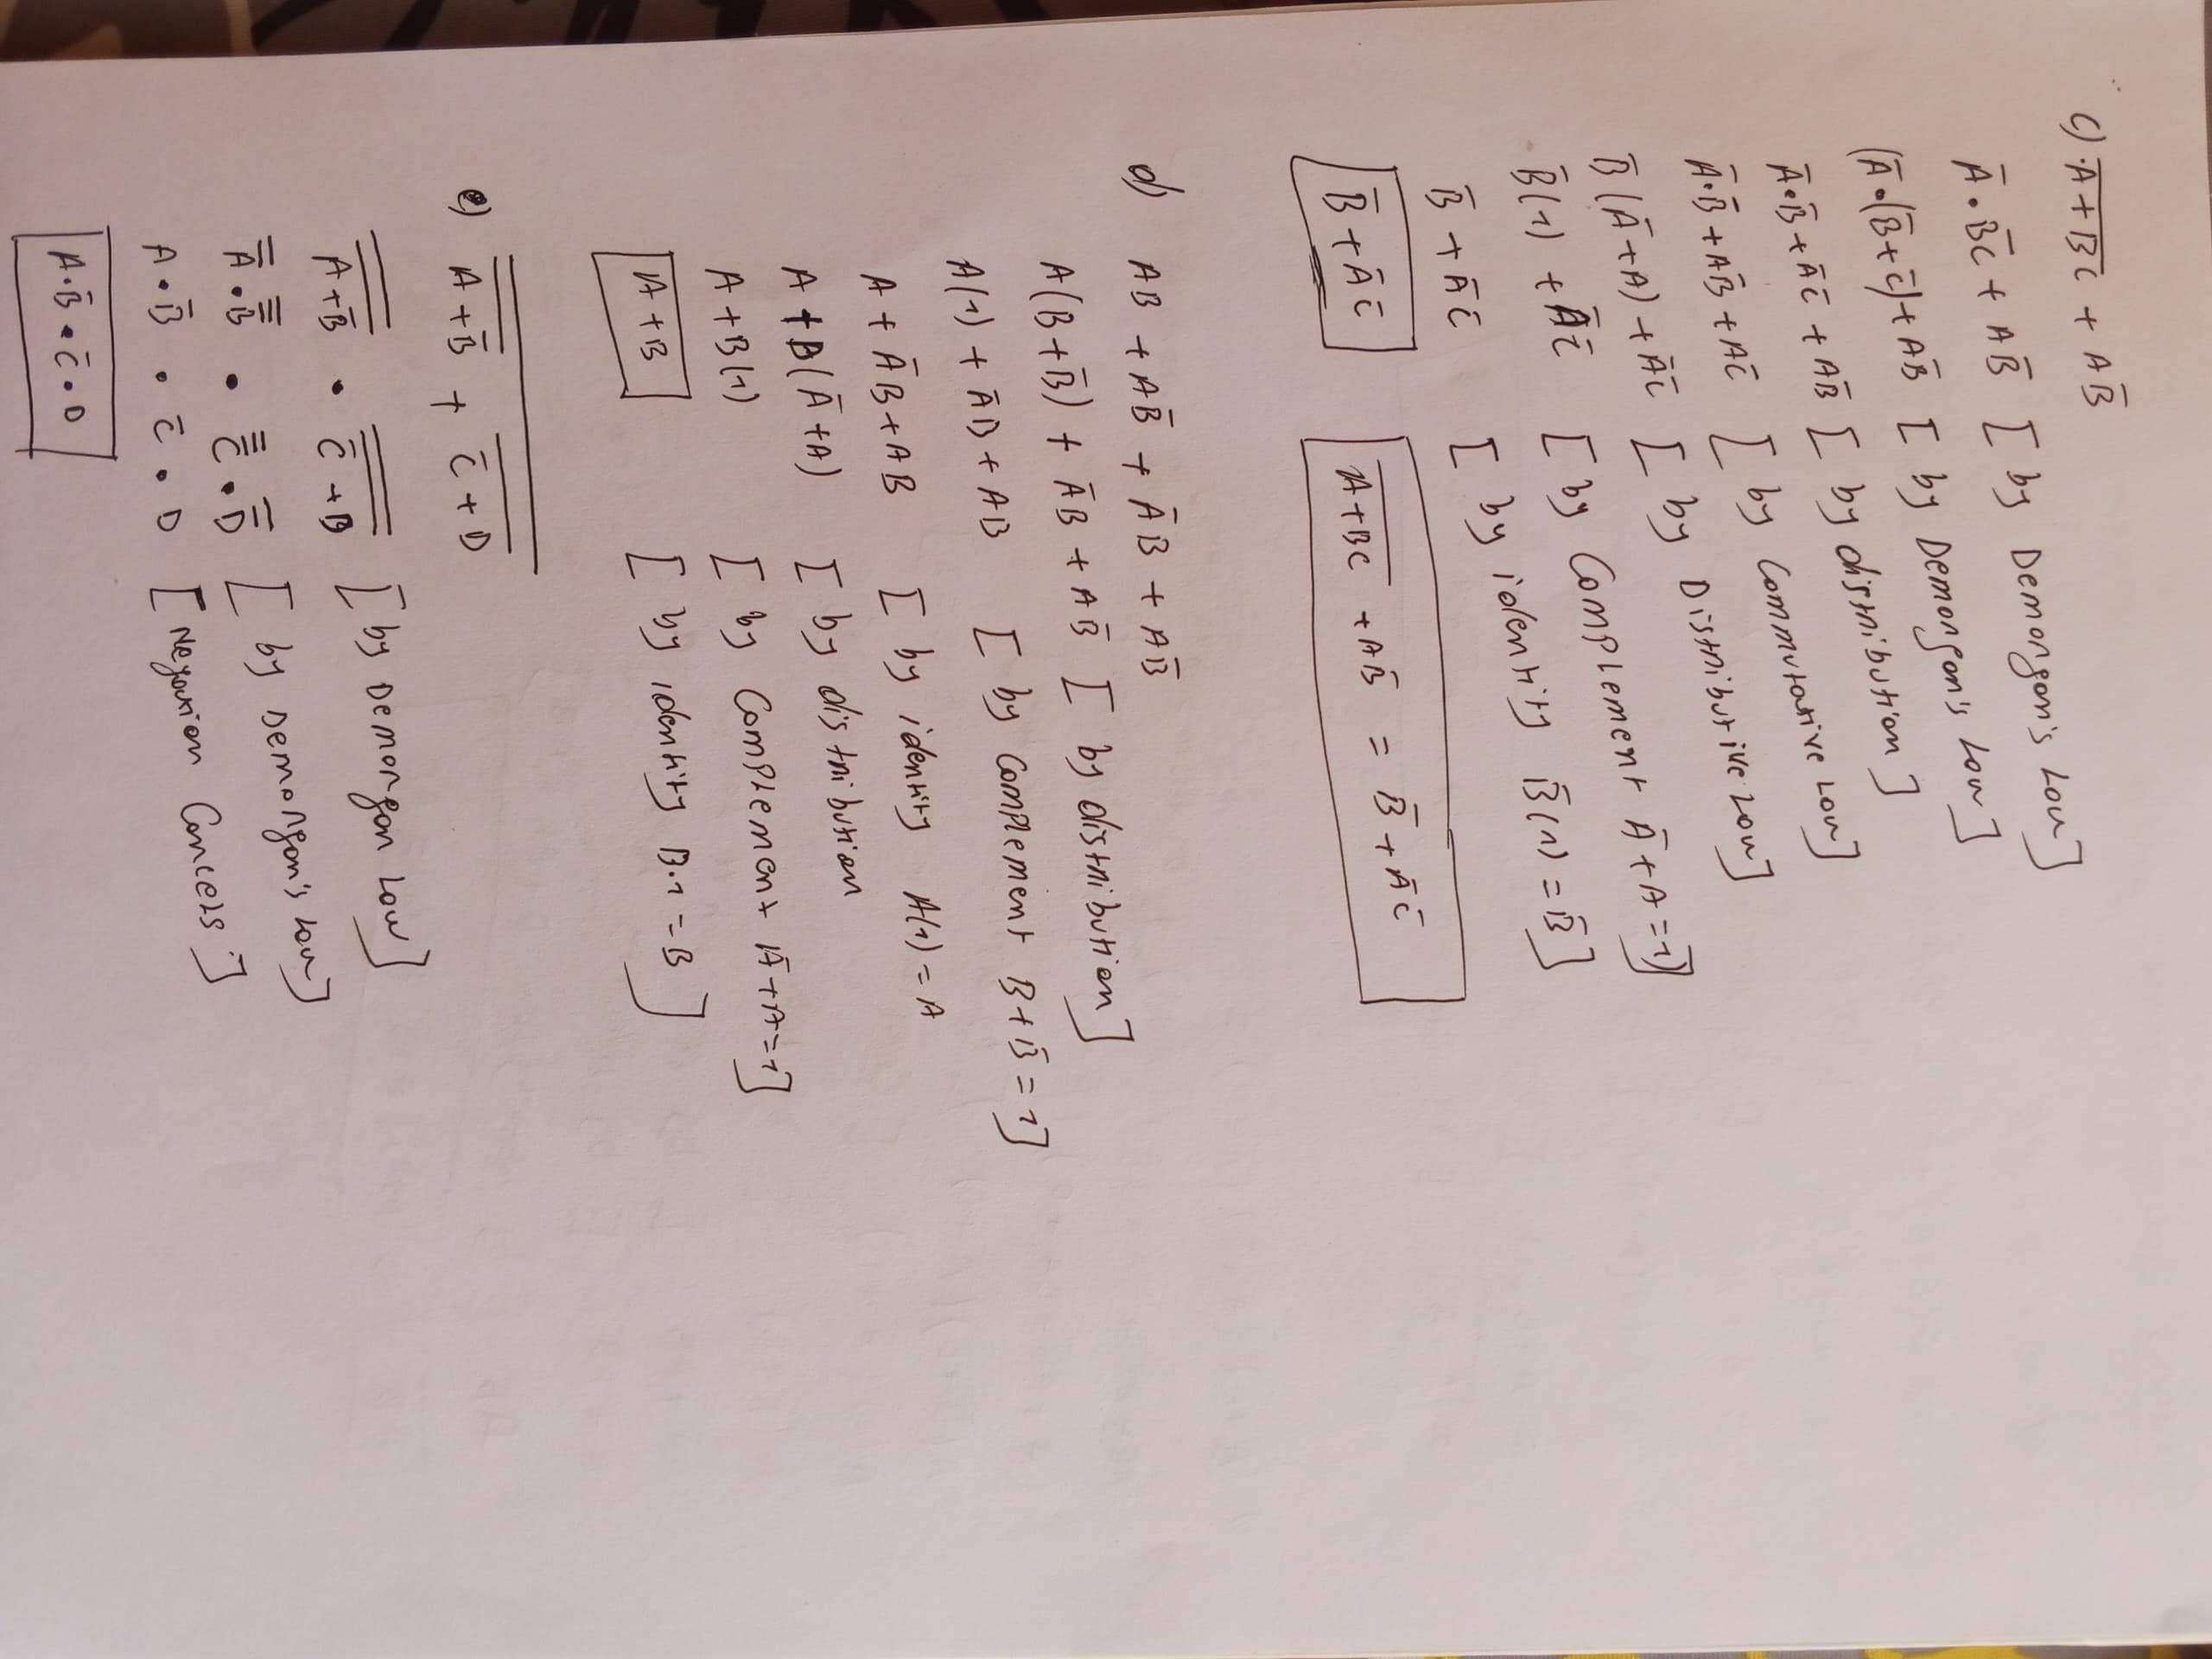 c) A̅+̅B̅C̅ + AB̅
A̅ . B̅C̅ + AB̅ [ by Demorgan's Low ]
(A̅ . (B̅+C̅) + AB̅ [ by Demorgan's Low ]
A̅.B̅ + A̅C̅ + AB̅ [ by distribution ]
A̅.B̅ + AB̅ + AC̅ [ by Commutative Low ]
B̅ (A̅+A) + A̅C̅ [ by Distributive Low ]
B̅(1) + A̅C̅ [ by Complement A̅+A=1]
B̅ + A̅C̅ [ by identity B̅(1) = B̅ ]
B̅ + A̅C̅ A̅+̅B̅C̅ + AB̅ = B̅ + A̅C̅
d) AB + AB̅ + A̅B + AB̅
A(B+B̅) + A̅B + AB̅ [ by distribution ]
A(1) + A̅B + AB [ by complement B+B̅ = 1]
A + A̅B + AB [ by identity A(1) = A
A + B(A̅+A) [ by distribution
A + B(1) [ by Complement A̅+A=1]
A + B [ by identity B.1 = B ]
e) A̿+̿B̿̅ + C̿̅+̿D̿
A̿+̿B̿̅ . C̿̅+̿B̿ [ by Demorgan Low ]
A̿ . B̿̅ . C̿̅ . D̿ [ by Demorgan's Low ]
A . B̅ . C̅ . D [ Negation Cancels ]
A . B̅ . C̅ . D